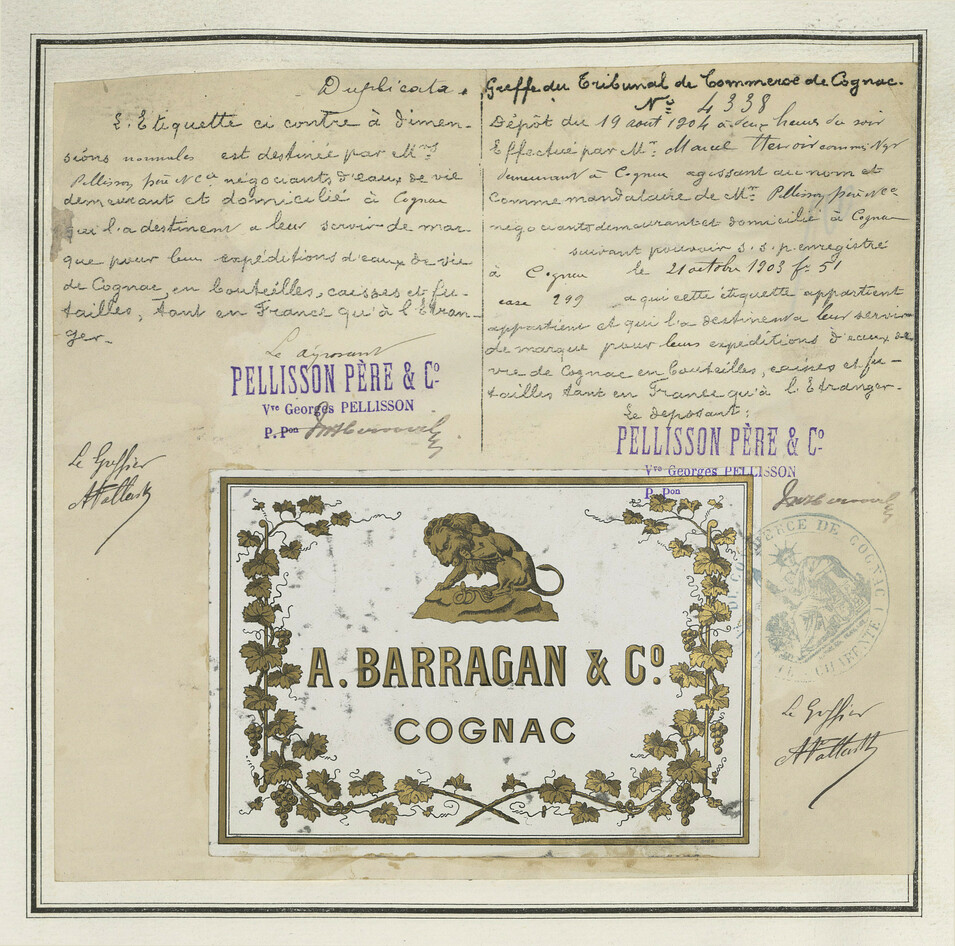 Duplicata.
L'Etiquette ci contre à dimen-
sions normales est destinée par Mrs
Pellisson père & Co négociants d'eaux de vie
demeurant et domicilié à Cognac
qui l'a destinent a leur servir de mar-
que pour leur expéditions d'eaux de vie
de Cognac, en bouteilles, caisses et fu-
tailles, tant en France qu'à l'Etran-
ger.
Le déposant
PELLISSON PÈRE & Co
Vve Georges PELLISSON
P. Pon
Le Greffier
Greffe du Tribunal de Commerce de Cognac.
No 4338
Dépôt du 19 août 1904 à deux heures du soir
Effectué par Mr. Marcel
demeurant à Cognac agissant au nom et
comme mandataire de Mrs Pellisson père & Co
négociants demeurant et domicilié à Cognac
suivant pouvoir s.s.p. enregistré
à Cognac le 21 octobre 1903 fo 51
case 299 a qui cette étiquette appartient
appartient et qui l'a destinent a leur servir
de marque pour leurs expeditions d'eaux de
vie de Cognac en bouteilles, caisses et fu-
tailles tant en France qu'à l'Etranger.
Le déposant:
PELLISSON PÈRE & Co
Vve Georges PELLISSON
P. Pon
COMMERCE DE COGNAC
CHARENTE
A. BARRAGAN & Co.
COGNAC
Le Greffier